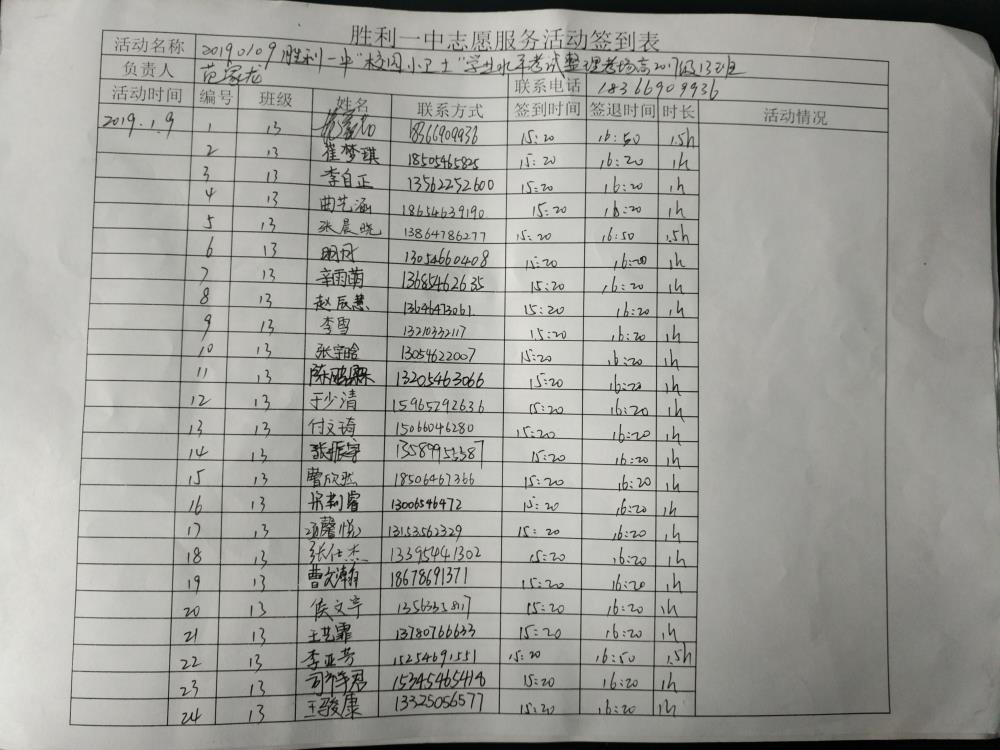 胜利一中志愿服务活动签到表
活动名称 20190109胜利一中"校园小卫士"学业水平考试整理考场高2017级13班
负责人 范家龙 联系电话 18366909936
活动时间 编号 班级 姓名 联系方式 签到时间 签退时间 时长 活动情况
2019.1.9 1 13 18366909936 15:20 16:50 1.5h
2 13 崔梦琪 18505465825 15:20 16:20 1h
3 13 李自正 13562252600 15:20 16:20 1h
4 13 曲艺涵 18654639190 15:20 16:20 1h
5 13 张晨晓 13864786277 15:20 16:50 1.5h
6 13 明月 13054660408 15:20 16:20 1h
7 13 辛雨萌 13685462635 15:20 16:20 1h
8 13 赵辰慧 13646473061 15:20 16:20 1h
9 13 李雪 13210332117 15:20 16:20 1h
10 13 张宇晗 13054622007 15:20 16:20 1h
11 13 13205463066 15:20 16:20 1h
12 13 于少清 15965292636 15:20 16:20 1h
13 13 付文琦 15066046280 15:20 16:20 1h
14 13 张振宇 15:20 16:20 1h
15 13 曹欣然 18506467366 15:20 16:20 1h
16 13 13006546472 15:20 16:20 1h
17 13 项馨悦 13153562329 15:20 16:20 1h
18 13 张仕杰 13395441302 15:20 16:20 1h
19 13 曹文瀚 18678691371 15:20 16:20 1h
20 13 侯文宇 15:20 16:20 1h
21 13 王艺霏 13780766633 15:20 16:20 1h
22 13 李亚芳 15254691551 15:20 16:50 1.5h
23 13 15345465418 15:20 16:20 1h
24 13 王骏康 13325056577 15:20 16:20 1h